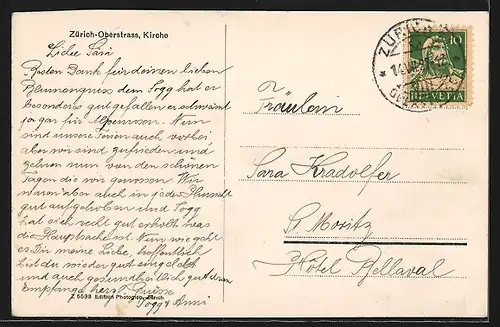 Zürich-Oberstrass, Kirche
Liebe Sari
Besten Dank für deinen lieben
Blumengruss dem Togg hat er
besonders gut gefallen er schwärmt
ja gar für Alpenrosen. Nun
sind unsere Ferien auch vorbei
aber wir sind zufrieden und
zehren nun von den schönen
Tagen die wir genossen. Wir
waren aber auch in jeder Hinsicht
gut aufgehoben und Togg
hat sich recht gut erholt was
die Hauptsache ist. Nun wie geht
es Dir meine Liebe, hoffentlich
bist du wieder gut eingelebt
und auch gesund bei dich gut dran
Empfange herzl. Grüsse
Togg & Anni
Z 5533 Edition Photoglob, Zürich
ZÜRICH
10
HELVETIA
Fräulein
Sara Kradolfer
St. Moritz
Hôtel Bellaval